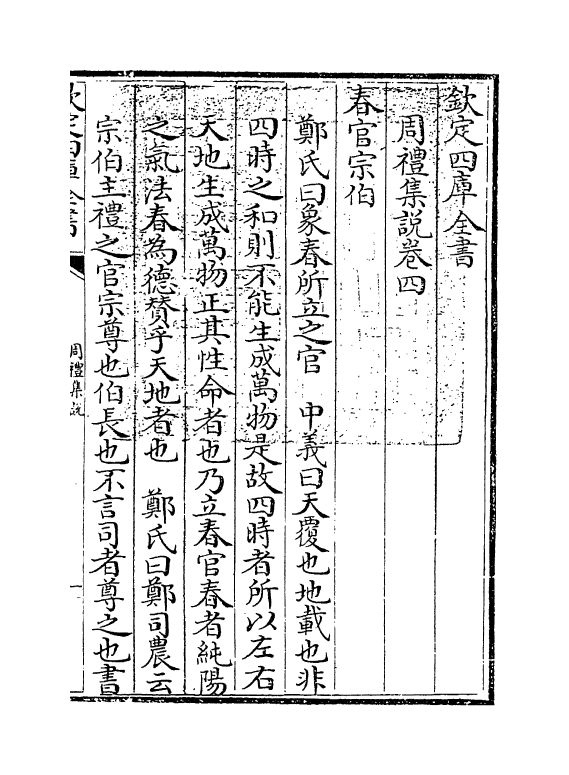 欽定四庫全書
周禮集說卷四
春官宗伯
鄭氏曰象春所立之官　中義曰天覆也地載也非
四時之和則不能生成萬物是故四時者所以左右
天地生成萬物正其性命者也乃立春官春者純陽
之氣法春為德贊乎天地者也　鄭氏曰鄭司農云
宗伯主禮之官宗尊也伯長也不言司者尊之也書
欽定四庫全書
周禮集說
一